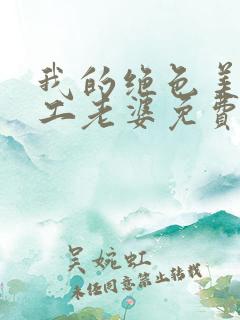 我的绝色美
工老婆免费
吴婉虹
未经同意禁止转载